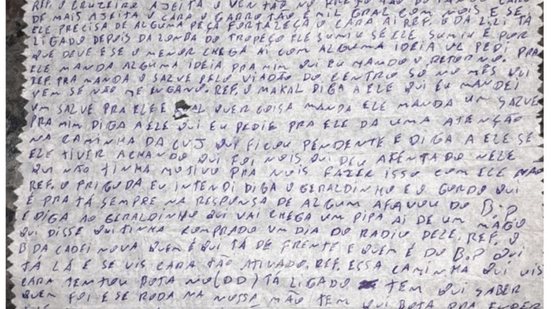 REF. O CRUZEIRO AJEITA O VENTÃO NO
DE MAIS AJEITA O CARA O GARROTÃO E MIL GRAU COM NOIS E SE
ELE PRECISA DE ALGUMA PEÇA FORTALEÇA O CARA AI REF. O DA ZL TA
LIGADO DEPOIS DA ZONDA DO TROPEÇO ELE SUMIU SE ELE SUMIU E POR
QUE DEVE ESE O MENOR CHEGA AI COM ALGUMA IDEIA VC PEDI PRA
ELE MANDA ALGUMA IDEIA PRA MIM QUI EU MANDO O RETORNO.
REF PRA MANDA O SALVE PELO VIADÃO DO CENTRO SO NO MÊS QUI
VEM SE NÃO ME ENGANO. REF. O MAKAL DIGA A ELE QUI EU MANDEI
UM SALVE PRA ELE E QUALQUER COISA MANDA ELE MANDA UM SALVE
PRA MIM DIGA A ELE QUI EU PEDIR PRA ELE DA UMA ATENÇÃO
NA CAMINHA DA QUI FICOU PENDENTE E DIGA A ELE SE
ELE TIVER ACHANDO QUI FOI NOIS QUI DEU ATENTADO NELE
QUI NÃO TINHA MOTIVO PRA NOIS FAZER ISSO COM ELE NÃO
REF. O PRIGODA EU INTENDI DIGA O GERALDINHO E U GORDO QUI
E PRA TÁ SEMPRE NA RESPONSA DE ALGUM AFAVOU DO B.P
E DIGA AO GERALDINHO QUI VAI CHEGA UM PIPA AI DE UM MAGO
QUI DISSE QUI TINHA COMPRADO UM DIA DO RADIU DELE. REF. O
B DA CADEI NOVA QUEM É QUI TÁ DE FRENTE E QUEM É DO B.P QUI
TÁ LÁ E SE VIS CARA TÃO ATIVADO. REF. ESSA CAMINHA QUI VIS
CARA TENTOU BOTA NO (DD) TÁ LIGADO TEM QUI SABER
QUEM FOI E SE RODA NA NOSSA MÃO TEM QUI BOTA PRA